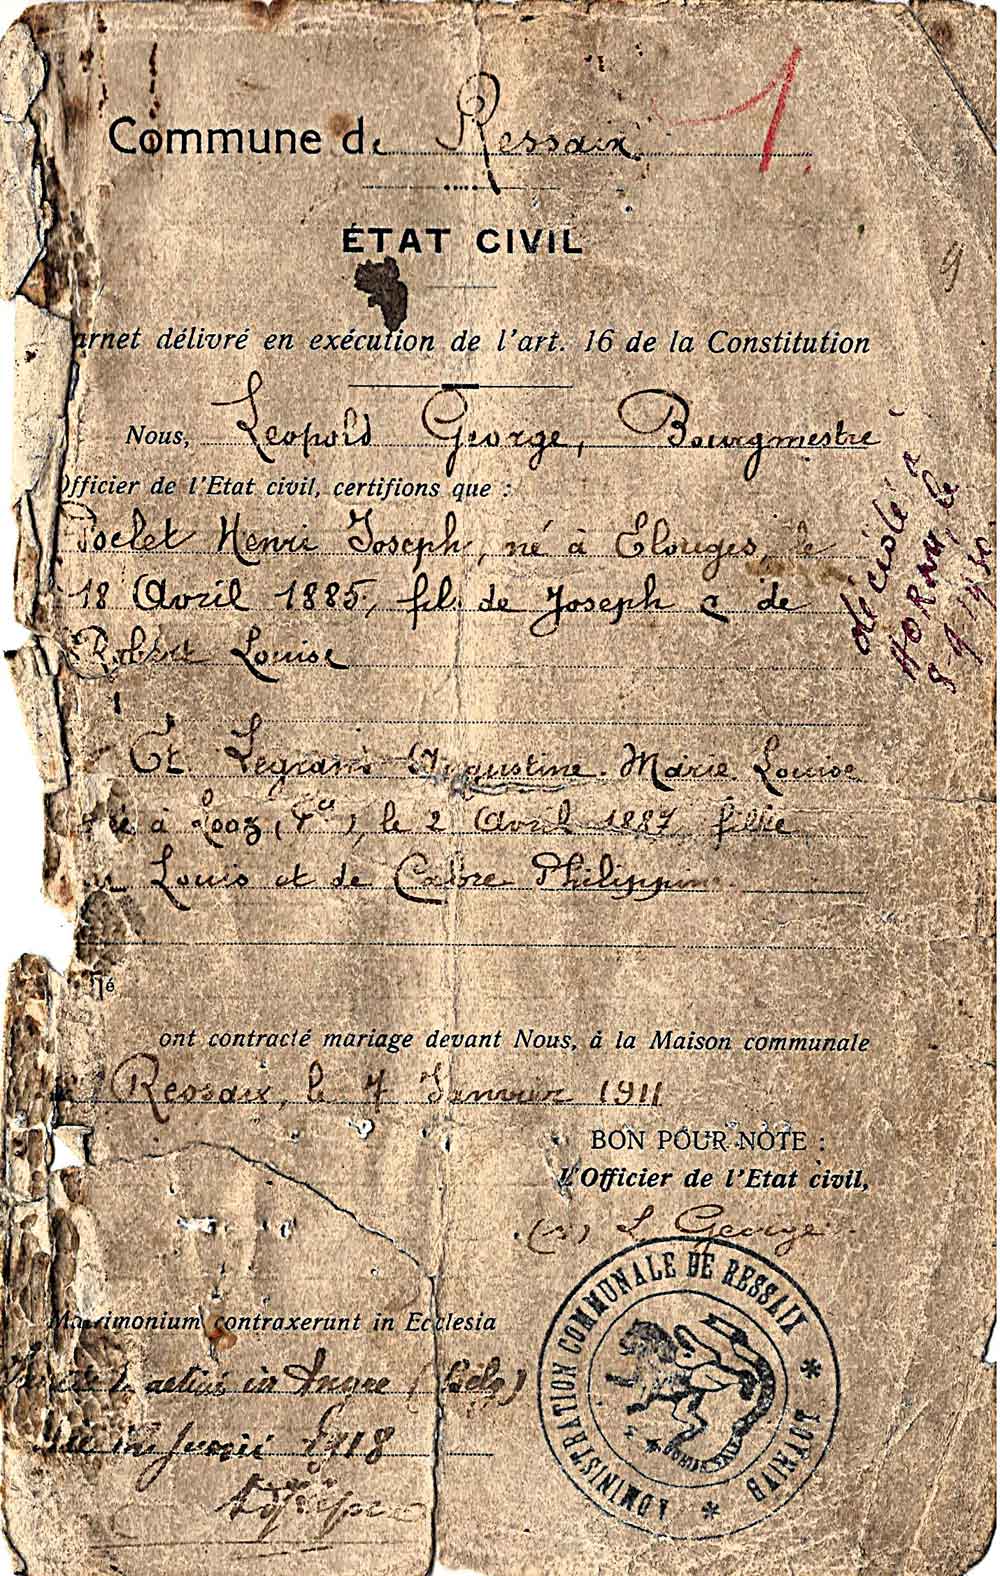 1
Commune de Ressaix
ÉTAT CIVIL
9
arnet délivré en exécution de l'art. 16 de la Constitution
Nous, Leopold George, Bourgmestre
Officier de l'Etat civil, certifions que :
Poclet Henri Joseph, né à Elouges, le
18 Avril 1885, fils de Joseph & de
Robert Louise
décidé à
HORNU, le
Et Legrand Augustine Marie Louise
née à Looz, ( ), le 2 Avril 1887 fille
Louis et de Cabre Philippine
né
ont contracté mariage devant Nous, à la Maison communale
Ressaix, le 7 Janvier 1911
BON POUR NOTE :
L'Officier de l'Etat civil,
(s) L George
Matrimonium contraxerunt in Ecclesia
in Angre (Belg)
Junii 1918
ADMINISTRATION COMMUNALE DE RESSAIX * HAINAUT *